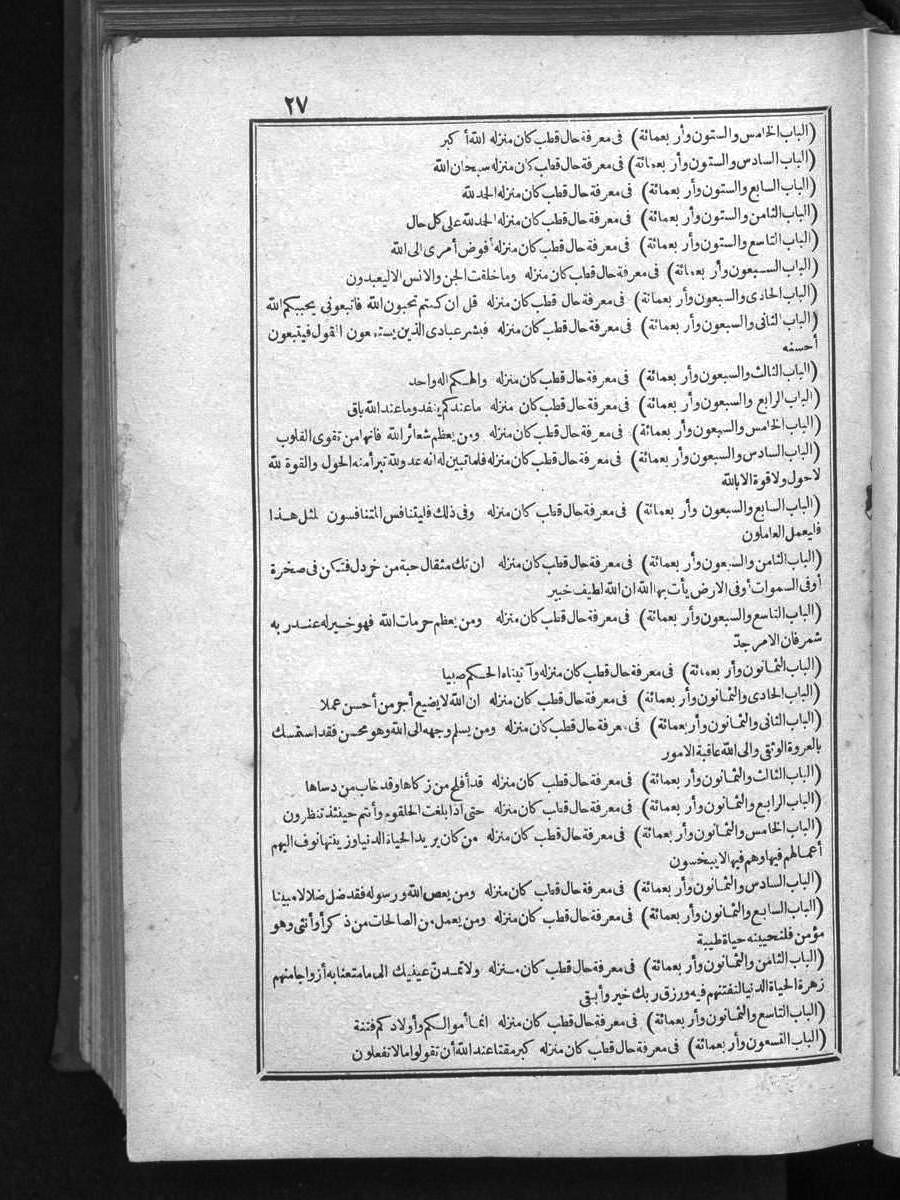 ٢٧
(الباب الخامس والستون وأربعمائة) فى معرفة حال قطب كان منزله الله أكبر
(الباب السادس والستون وأربعمائة) فى معرفة حال قطب كان منزله سبحان الله
(الباب السابع والستون وأربعمائة) فى معرفة حال قطب كان منزله الحمد لله
(الباب الثامن والستون وأربعمائة) فى معرفة حال قطب كان منزله الحمد لله على كل حال
(الباب التاسع والستون وأربعمائة) فى معرفة حال قطب كان منزله أفوض أمرى الى الله
(الباب السبعون وأربعمائة) فى معرفة حال قطب كان منزله وما خلقت الجن والانس الا ليعبدون
(الباب الحادى والسبعون وأربعمائة) فى معرفة حال قطب كان منزله قل ان كنتم تحبون الله فاتبعونى يحببكم الله
(الباب الثانى والسبعون وأربعمائة) فى معرفة حال قطب كان منزله فبشر عبادى الذين يستمعون القول فيتبعون
أحسنه
(الباب الثالث والسبعون وأربعمائة) فى معرفة حال قطب كان منزله والهكم اله واحد
(الباب الرابع والسبعون وأربعمائة) فى معرفة حال قطب كان منزله ما عندكم ينفد وما عند الله باق
(الباب الخامس والسبعون وأربعمائة) فى معرفة حال قطب كان منزله ومن يعظم شعائر الله فانها من تقوى القلوب
(الباب السادس والسبعون وأربعمائة) فى معرفة حال قطب كان منزله فلما تبين له انه عدو لله تبرأ منه الحول والقوة لله
لا حول ولا قوة الا بالله
(الباب السابع والسبعون وأربعمائة) فى معرفة حال قطب كان منزله وفى ذلك فليتنافس المتنافسون لمثل هذا
فليعمل العاملون
(الباب الثامن والسبعون وأربعمائة) فى معرفة حال قطب كان منزله ان تك مثقال حبة من خردل فتكن فى صخرة
أو فى السموات أو فى الارض يأت بها الله ان الله لطيف خبير
(الباب التاسع والسبعون وأربعمائة) فى معرفة حال قطب كان منزله ومن يعظم حرمات الله فهو خير له عند ربه
شمر فان الامر جدّ
(الباب الثمانون وأربعمائة) فى معرفة حال قطب كان منزله وآتيناه الحكم صبيا
(الباب الحادى والثمانون وأربعمائة) فى معرفة حال قطب كان منزله ان الله لا يضيع أجر من أحسن عملا
(الباب الثانى والثمانون وأربعمائة) فى معرفة حال قطب كان منزله ومن يسلم وجهه الى الله وهو محسن فقد استمسك
بالعروة الوثقى والى الله عاقبة الامور
(الباب الثالث والثمانون وأربعمائة) فى معرفة حال قطب كان منزله قد أفلح من زكاها وقد خاب من دساها
(الباب الرابع والثمانون وأربعمائة) فى معرفة حال قطب كان منزله حتى اذا بلغت الحلقوم وأنتم حينئذ تنظرون
(الباب الخامس والثمانون وأربعمائة) فى معرفة حال قطب كان منزله من كان يريد الحياة الدنيا وزينتها نوف اليهم
أعمالهم فيها وهم فيها لا يبخسون
(الباب السادس والثمانون وأربعمائة) فى معرفة حال قطب كان منزله ومن يعص الله ورسوله فقد ضل ضلالا مبينا
(الباب السابع والثمانون وأربعمائة) فى معرفة حال قطب كان منزله ومن يعمل من الصالحات من ذكر أو أنثى وهو
مؤمن فلنحيينه حياة طيبة
(الباب الثامن والثمانون وأربعمائة) فى معرفة حال قطب كان منزله ولا تمدن عينيك الى ما متعنا به أزواجا منهم
زهرة الحياة الدنيا لنفتنهم فيه ورزق ربك خير وأبقى
(الباب التاسع والثمانون وأربعمائة) فى معرفة حال قطب كان منزله انما أموالكم وأولادكم فتنة
(الباب التسعون وأربعمائة) فى معرفة حال قطب كان منزله كبر مقتا عند الله أن تقولوا ما لا تفعلون